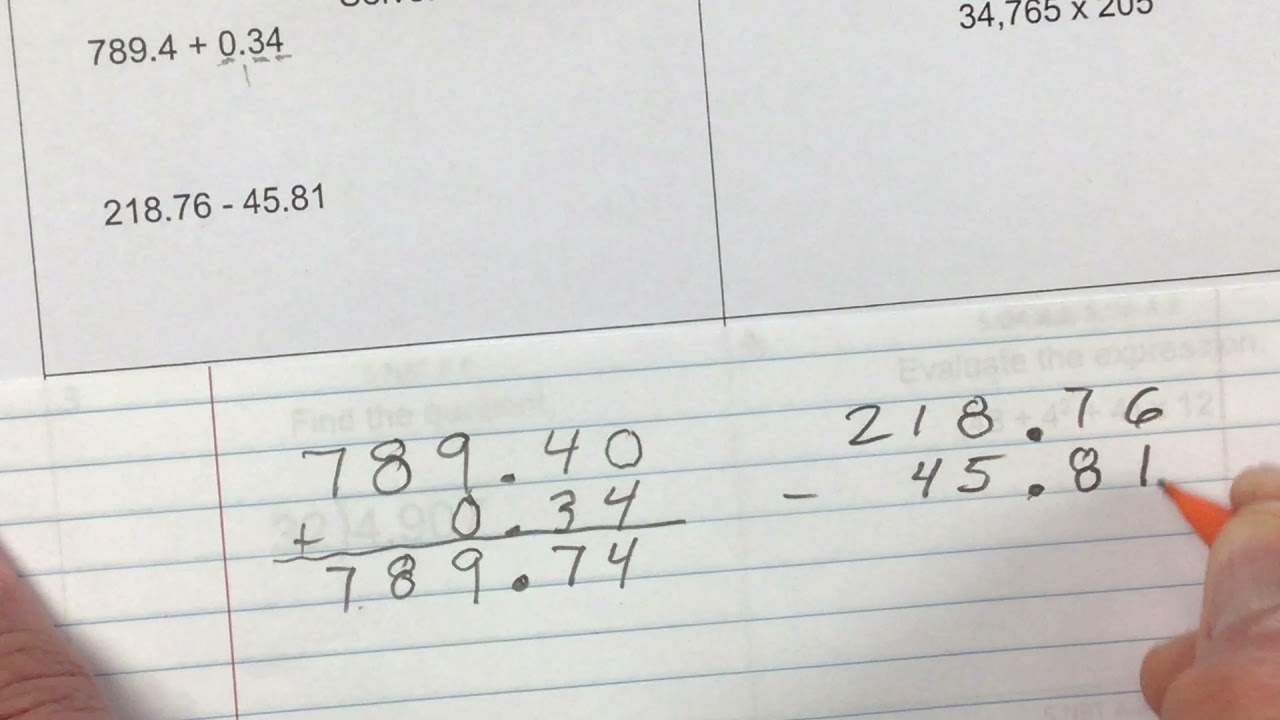 34,765 x 205
789.4 + 0.34
218.76 - 45.81
Find the
Evaluate the expression
789.40
+ 0.34
789.74
218.76
- 45.81